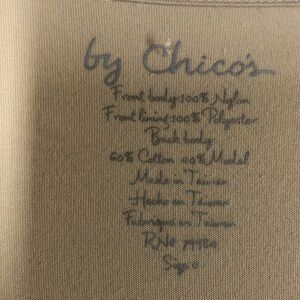 by Chico's
Front body:100% Nylon
Front lining:100% Polyester
Back body
60% Cotton 40% Modal
Made in Taiwan
Hecho en Taiwan
Fabrique en Taiwan
RN# 79984
Size 0